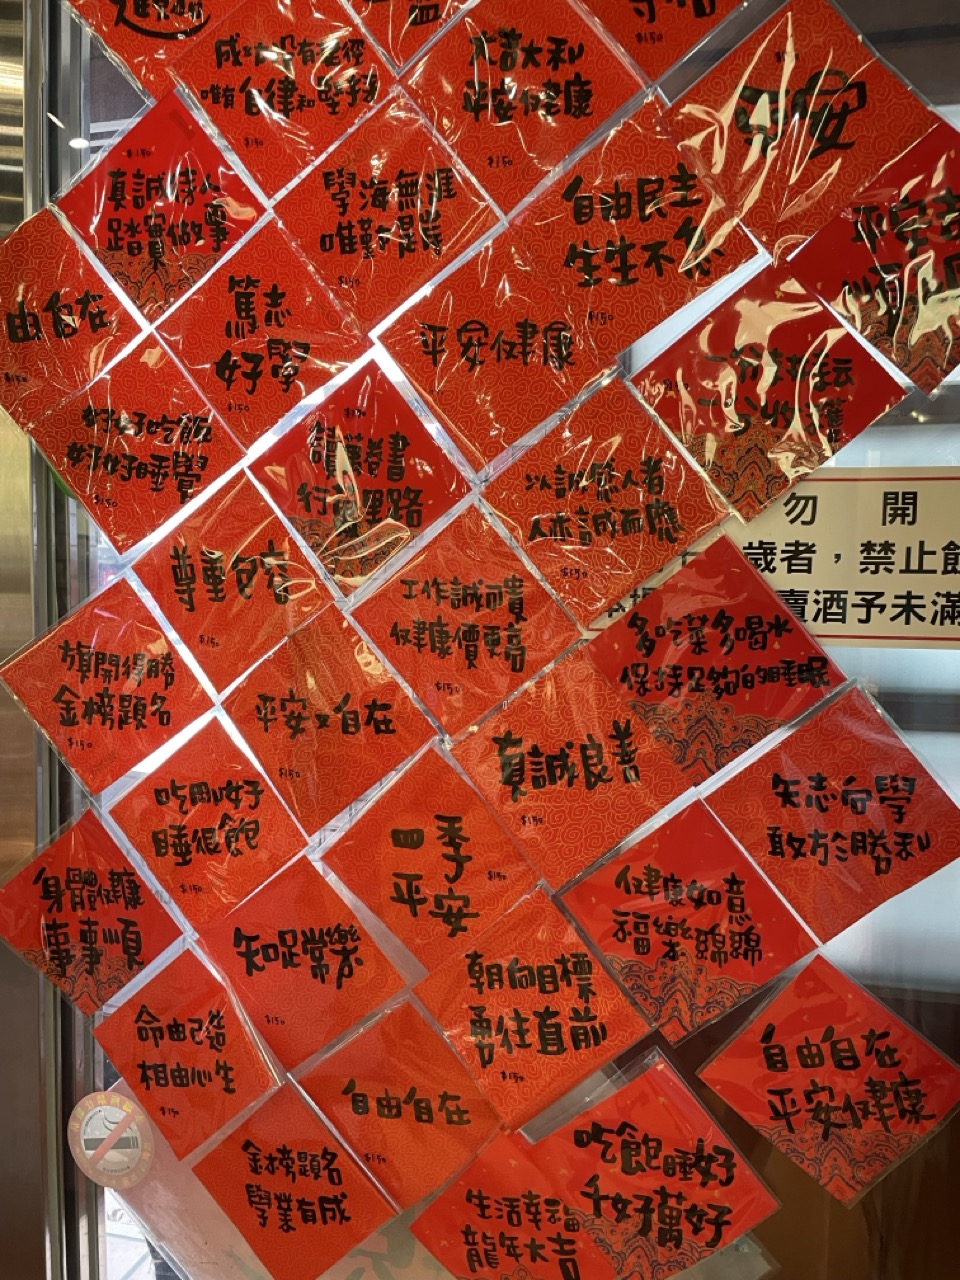 成功沒有捷徑
唯有自律和堅持
$150
大吉大利
平安健康
$150
$150
平安
$150
真誠待人
踏實做事
學海無涯
唯勤是岸
$150
自由民主
生生不息
$150
平安吉
順
由自在
$150
篤志
好學
$150
平安健康
一分耕耘
一分收穫
好好吃飯
好好睡覺
$150
$150
讀萬卷書
行萬里路
以誠感人者
人亦誠而應
$150
勿 開
歲者，禁止飲
賣酒予未滿
尊重包容
$150
工作誠可貴
健康價更高
$150
多吃菜多喝水
保持足夠的睡眠
旗開得勝
金榜題名
$150
平安又自在
$150
真誠良善
$150
吃剛好
睡很飽
$150
四季
平安
$150
矢志向學
敢方於勝利
身體健康
事事順
知足常樂
$150
健康如意
福樂綿綿
朝向目標
勇往直前
$150
命由己造
相由心生
$150
自由自在
$150
自由自在
平安健康
金榜題名
學業有成
吃飽睡好
千好萬好
生活幸福
龍年大吉